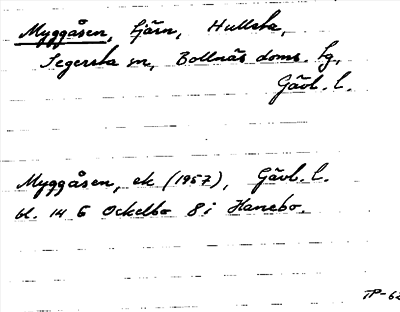 Myggåsen, tjärn, Hullsta,
Segersta sn, Bollnäs doms. tg,
Gävl. l.
Myggåsen, ek (1957), Gävl. l.
bl. 14 G Ockelbo 8 i Hanebo.
TP-62